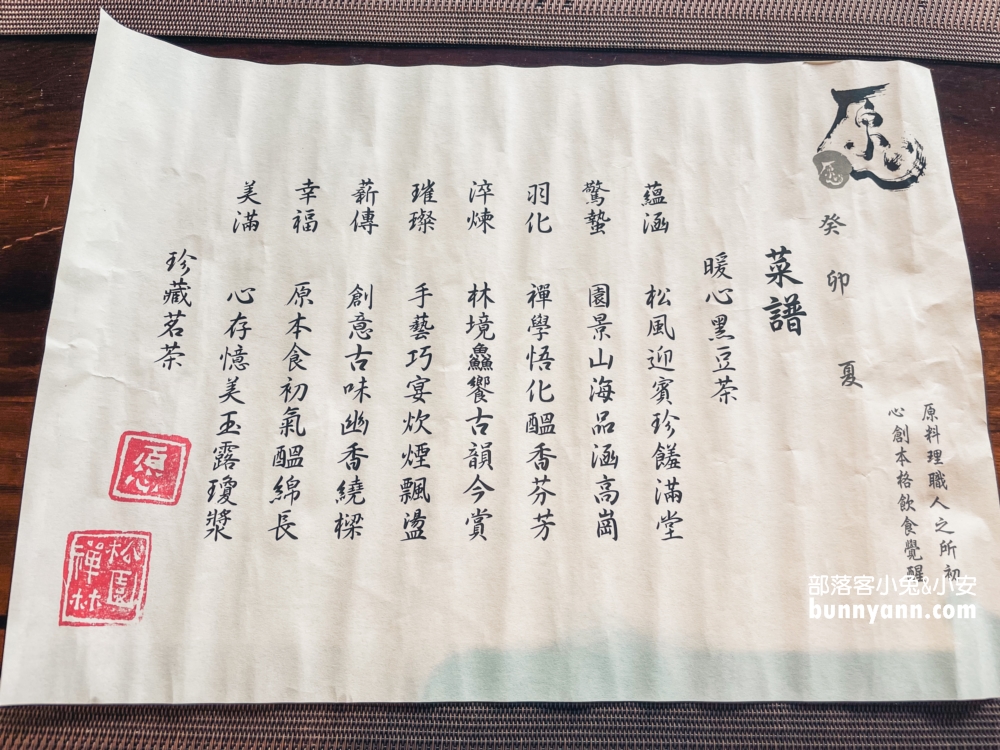 原心
癸卯 夏
原料理職人之所初
心創本格飲食覺醒
菜譜
暖心黑豆茶
蘊涵 松風迎賓珍饈滿堂
驚蟄 園景山海品涵高崗
羽化 禪學悟化醞香芬芳
淬煉 林境鱻饗古韻今賞
璀璨 手藝巧宴炊煙飄盪
薪傳 創意古味幽香繞樑
幸福 原本食初氣醞綿長
美滿 心存憶美玉露瓊漿
珍藏茗茶
松園禪林
部落客小兔&小安
bunnyann.com